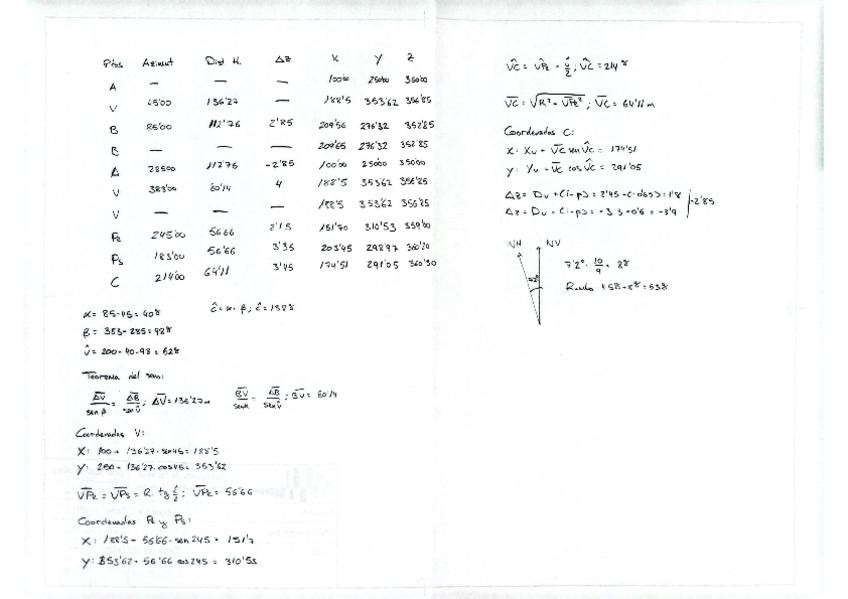 Ptos Azimut Dist H. Δz X Y Z
A — — — 100'00 250'00 350'00
V 45'00 136'27 — 188'5 353'62 356'85
B 85'00 112'76 2'85 209'56 276'32 352'85
B — — — 209'65 276'32 352'85
A 285'00 112'76 -2'85 100'00 250'00 350'00
V 383'00 80'14 4 188'5 353'62 356'85
V — — — 188'5 353'62 356'85
Pe 245'00 56'66 2'15 151'70 310'53 359'00
Ps 183'00 56'66 3'35 203'45 298'97 360'20
C 214'00 64'11 3'45 174'51 291'05 360'30
α = 85-45 = 40g ĉ = α + β; ĉ = 138g
β = 383-285 = 98g
v̂ = 200-40-98 = 62g
Teorema del seno:
AV/sen β = AB/sen v̂; AV = 136'27m BV/sen α = AB/sen v̂; BV = 80'14
Coordenadas V:
X: 100 + 136'27·sen45 = 188'5
Y: 250 + 136'27·cos45 = 353'62
VPe = VPs = R·tg ĉ/2; VPe = 56'66
Coordenadas Pe y Ps:
X: 188'5 + 56'66·sen 245 = 151'7
Y: 353'62 + 56'66 cos 245 = 310'53
VC = VPe - v̂/2; VC = 214g
VC = √R² + VPe²; VC = 64'11m
Coordenadas C:
X: Xv + VC sen VC = 174'51
Y: Yv + VC cos VC = 291'05
Δz = Dv + (i-p) =
Δz = Dv + (i-p) =
-2'85
NM NV
7'2° · 10/9 = 8g
Rumbo 45g + 8g = 53g